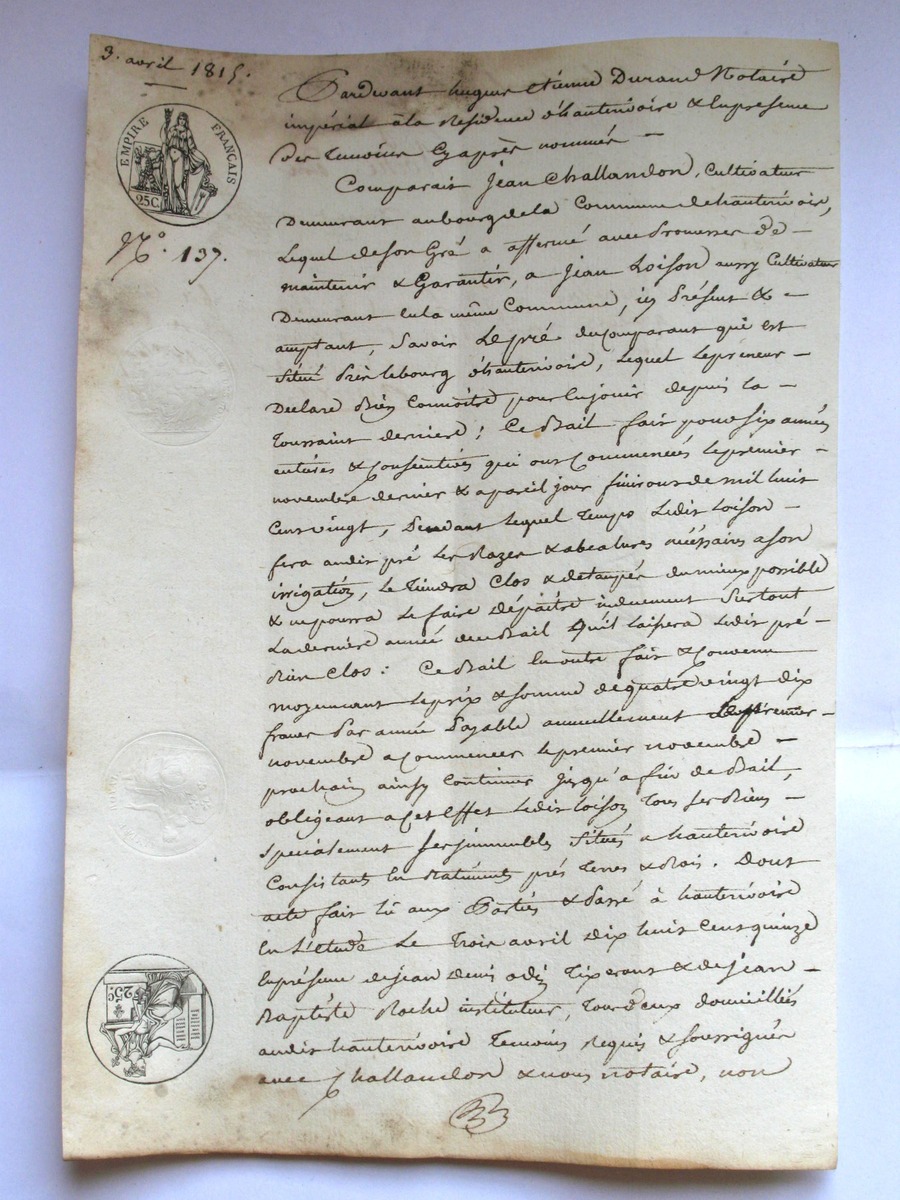 3. avril 1815.
EMPIRE FRANÇAIS
25C.
N.o 137.
Pardevant hugues etiénne Durand Notaire
impérial à la Residence d'hauterivoire & en presence
Des Temoins Cy après nommés —
Comparait Jean Challandon, Cultivateur
Demeurant au bourg de la Commune de hauterivoire,
Lequel de son Gré a affermé avec Promesses De —
maintenir & Garantir, a Jean Loison aussy Cultivateur
Demeurant en la même Commune, icy Présent & —
acceptant, Savoir Le pré du Comparant qui est
Situé Près le bourg d'hauterivoire, Lequel le preneur —
Declare Bien Connoitre, pour En jouir depuis la —
Toussaint derniere; Ce Bail fait pour Six années
entieres & Consecutives qui ont Commencées le premier —
novembre dernier & a pareil jour finiront de mil huit
Cent vingt, Pendant Lequel Temps Ledit Loison —
fera audit pré Les Razes & abealures nécessaires a son
irrigation, Le Tiendra Clos & detaupér du mieux possible
& ne pourra Le faire dépaître induement Surtout
La derniere année du Bail Qu'il laissera Ledit pré —
Bien Clos: Ce Bail En outre fait & Convenu
moyennant Le prix & Somme de quatre vingt dix
francs Par année Payable annuellement Le premier —
novembre a Commencer le premier novembre —
prochain ainsy Continuer jusqu'a fin de Bail,
obligeant a Cet Effet Ledit Loison Tous Ses Biens —
Specialement Ses immeubles Situés a hauterivoire
Consistants En Batiments prés Terres & Bois. Dont
acte fait lû aux Parties & Passé à hauterivoire
En L'étude Le Trois avril Dix huit Cent quinze
En présence de jean Denis Tixerant & de jean —
Baptiste Roche instituteur, Tous deux domicilliés
audit hauterivoire Temoins Requis & Soussignés
avec Challandon & nous notaire, non
25C.